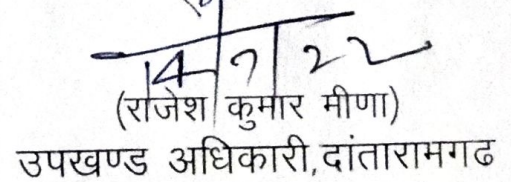 14/7/22
(राजेश कुमार मीणा)
उपखण्ड अधिकारी,दांतारामगढ